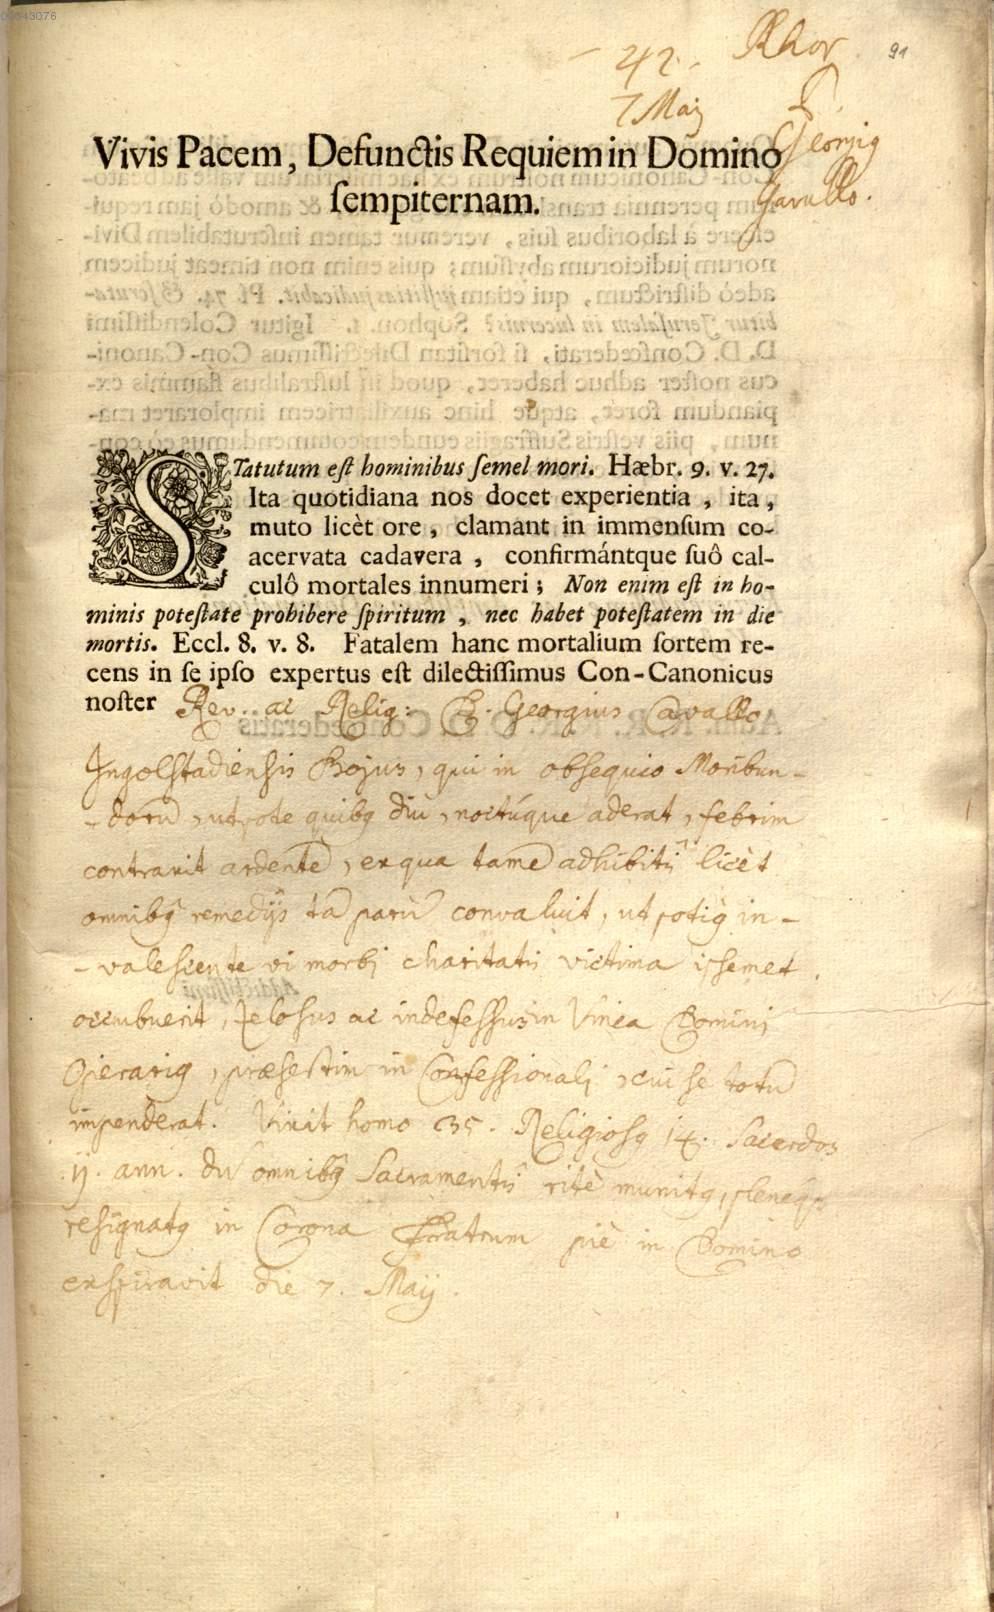 00043076
- 42. Rhor 91
7 Maij P.
Georgiq
Gavallo.
Vivis Pacem, Defunctis Requiem in Domino
ſempiternam.
STatutum eſt hominibus ſemel mori. Hæbr. 9. v. 27.
Ita quotidiana nos docet experientia, ita,
muto licèt ore, clamant in immenſum co-
acervata cadavera, confirmántque ſuô cal-
culô mortales innumeri; Non enim eſt in ho-
minis poteſtate prohibere ſpiritum, nec habet poteſtatem in die
mortis. Eccl. 8. v. 8. Fatalem hanc mortalium ſortem re-
cens in ſe ipſo expertus eſt dilectiſſimus Con-Canonicus
noſter Rev. ac Relig: P. Georgius Cavallo
Ingolstadiensis Bojus, qui in obsequio Moribun-
-dorũ, utpote quibq diu, noctúque aderat, febrim
contraxit ardentẽ, ex qua tamẽ adhibitis licèt
omnibq remedijs tã parũ convaluit, ut potiq in-
-valescente vi morbi charitatis victima ipsemet
occubuerit, Zelosus ac indefessus in Vinea Domini
Operariq, præsertim in Confessionali, cui se totũ
impenderat. Vixit homo 35. Religiosq 14. Sacerdos
ij. ann. dũ omnibq Sacramentis ritè munitq, pleneq
resignatq in Corona Fratrum piè in Domino
exspiravit die 7. Maij.